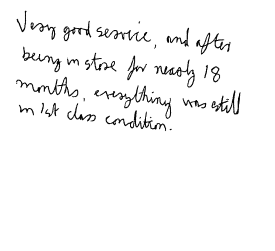 Very good service, and after
being in store for nearly 18
months, everything was still
in 1st class condition.